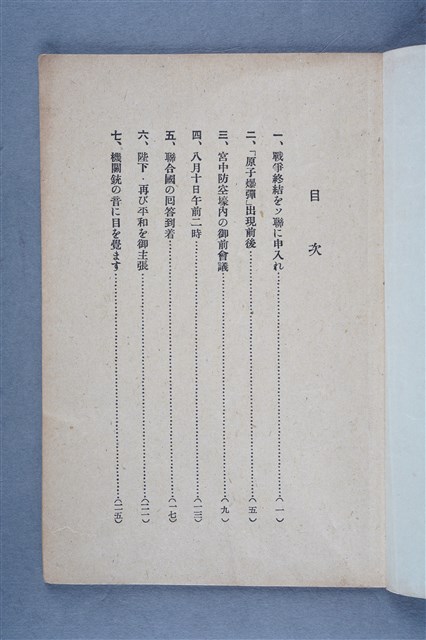 目次
一、戰爭終結をソ聯に申入れ……(一)
二、「原子爆彈」出現前後……(五)
三、宮中防空壕内の御前會議……(九)
四、八月十日午前二時……(一三)
五、聯合國の囘答到着……(一七)
六、陛下・再び平和を御主張……(二一)
七、機關銃の音に目を覺ます……(二五)